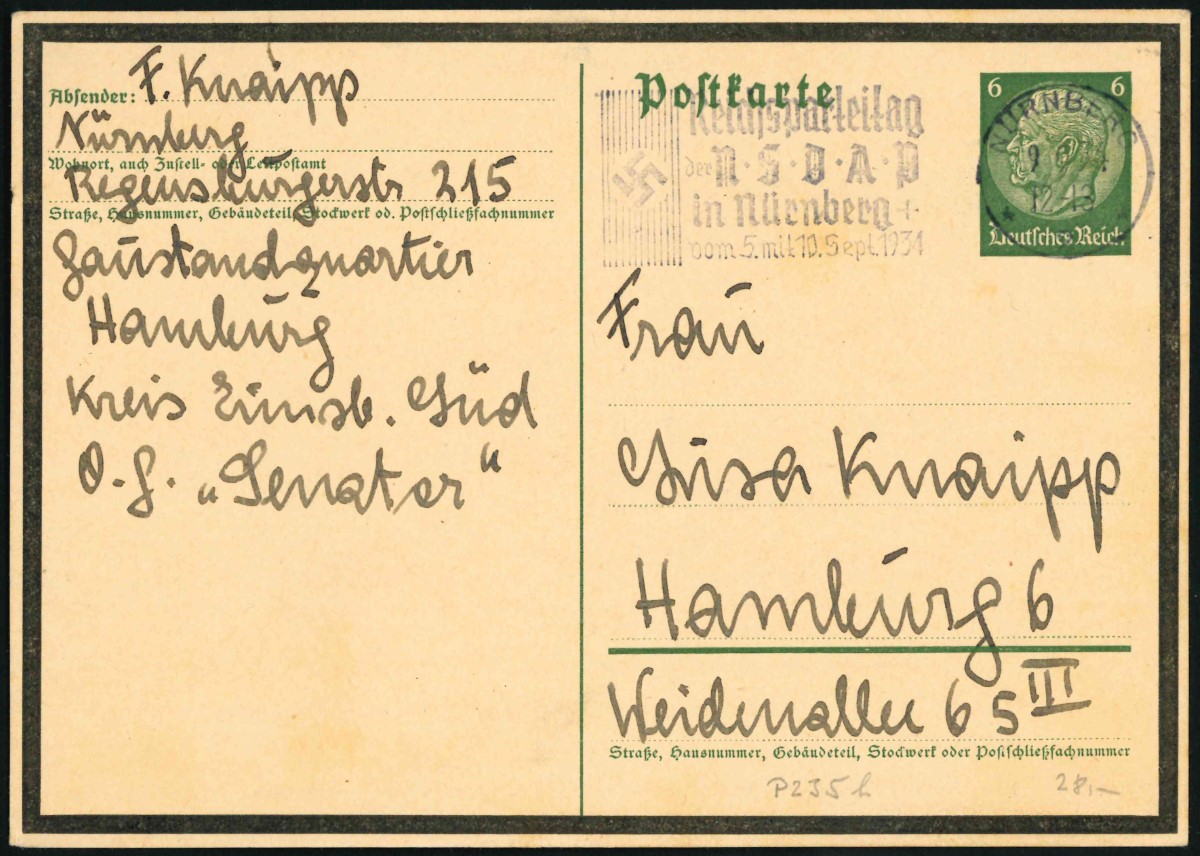 Absender: F. Knaipp
Nürnberg
Wohnort, auch Zustell- oder Leitpostamt
Regensburgerstr. 215
Straße, Hausnummer, Gebäudeteil, Stockwerk od. Postschließfachnummer
Gaustandquartier
Hamburg
Kreis Eimsb. Süd
O.G. „Senator“
Postkarte
Reichsparteitag
der N·S·D·A·P
in Nürnberg
vom 5. mit 10. Sept. 1934
6 6
Deutsches Reich
NÜRNBERG
12-13
Frau
Lisa Knaipp
Hamburg 6
Weidenallee 65 III
Straße, Hausnummer, Gebäudeteil, Stockwerk oder Postschließfachnummer
P235 h 28,-